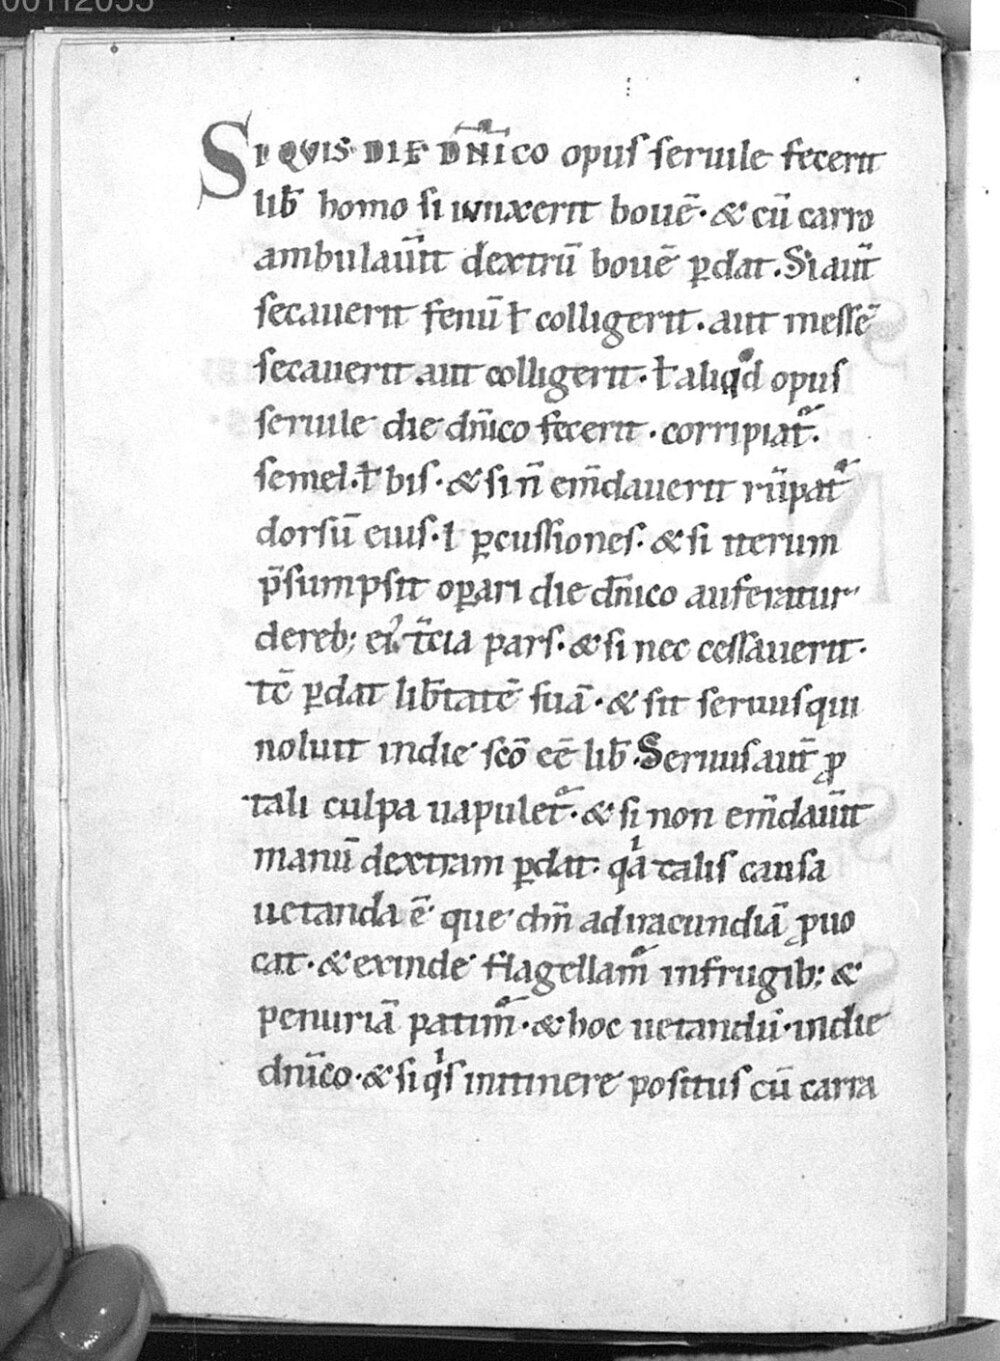 00112055
SI QVIS DIE DN̄ICO opus seruile fecerit
lib̄ homo si iunxerit bouē· & cū carro
ambulau̅it dextrū bouē ꝑdat. Si aut̄
secauerit fenū ł colligerit. aut messē
secauerit. aut colligerit. ł aliqͦd opus
seruile die dn̄ico fecerit. corripiat᷑.
semel. ł bis. & si n̄ em̄dauerit rūpat᷑
dorsū eius. l ꝑcussiones. & si iterum
p̄sumpsit oꝑari die dn̄ico auferatur
de reb; ei᷒ t̄cia pars. & si nec cessauerit.
tc̄ ꝑdat lib̄tatē suā. & sit seruus qui
noluit in die sc̄o eē lib̄. Seruus aut̄ ꝓ
tali culpa uapulet᷑. & si non em̄dau̅it
manū dextram ꝑdat. qͥa talis causa
uetanda ē que dm̄ ad iracundiā ꝓuo
cat. & exinde flagellam᷑ in frugib; &
penuriā patim᷑. & hoc uetandū. in die
dn̄ico. & si qͥs initinere positus cū carra